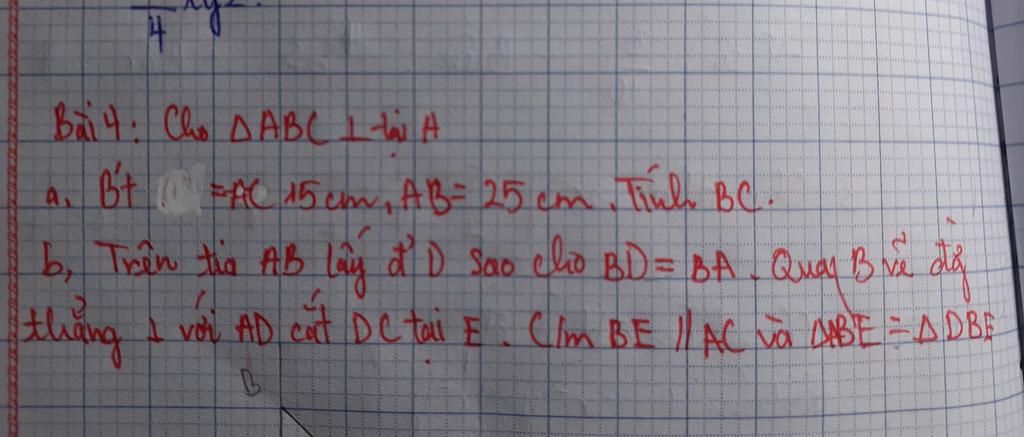 4 xyz.
Bài 4: Cho ΔABC ⊥ tại A
a, B't =AC 15 cm, AB= 25 cm. Tính BC.
b, Trên tia AB lấy đ' D sao cho BD = BA. Quay B vẽ đg
thẳng ⊥ với AD cắt DC tại E. C/m BE // AC và ΔABE = ΔDBE
B